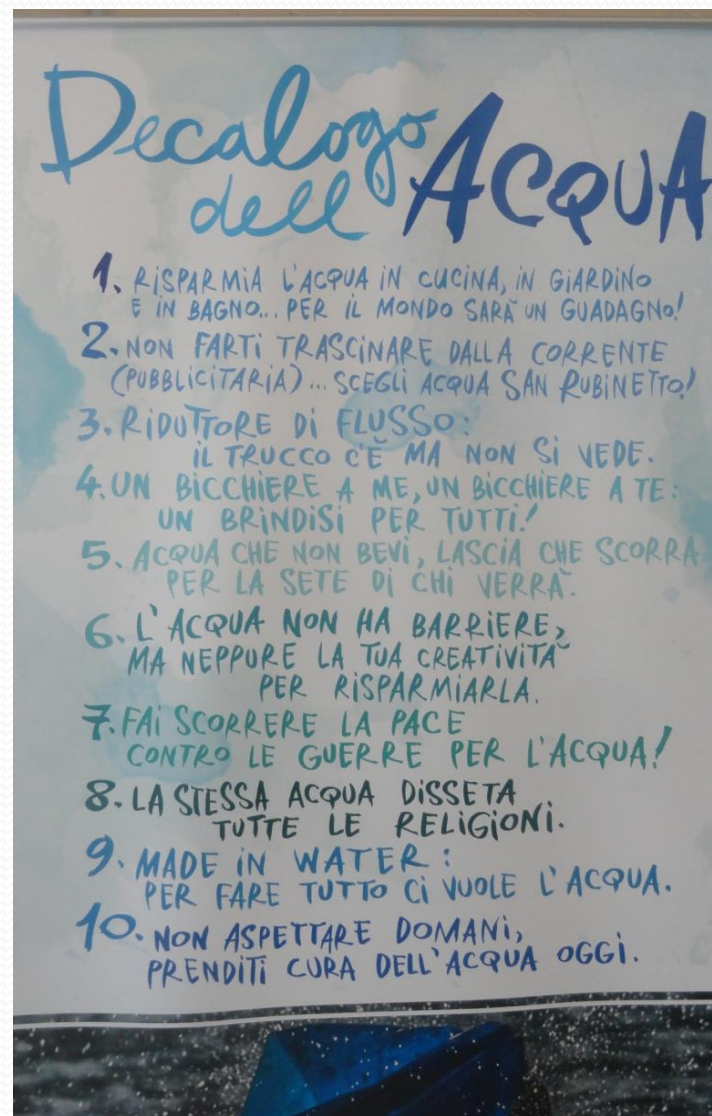 Decalogo
dell'ACQUA
1. RISPARMIA L'ACQUA IN CUCINA, IN GIARDINO
E IN BAGNO... PER IL MONDO SARÀ UN GUADAGNO!
2. NON FARTI TRASCINARE DALLA CORRENTE
(PUBBLICITARIA)... SCEGLI ACQUA SAN RUBINETTO!
3. RIDUTTORE DI FLUSSO:
IL TRUCCO C'È MA NON SI VEDE.
4. UN BICCHIERE A ME, UN BICCHIERE A TE:
UN BRINDISI PER TUTTI!
5. ACQUA CHE NON BEVI, LASCIA CHE SCORRA
PER LA SETE DI CHI VERRÀ.
6. L'ACQUA NON HA BARRIERE,
MA NEPPURE LA TUA CREATIVITÀ
PER RISPARMIARLA.
7. FAI SCORRERE LA PACE
CONTRO LE GUERRE PER L'ACQUA!
8. LA STESSA ACQUA DISSETA
TUTTE LE RELIGIONI.
9. MADE IN WATER:
PER FARE TUTTO CI VUOLE L'ACQUA.
10. NON ASPETTARE DOMANI,
PRENDITI CURA DELL'ACQUA OGGI.